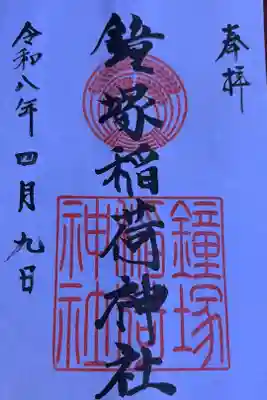 奉拝
鐘塚稲荷神社
令和八年四月九日
鐘塚
稲荷
神社